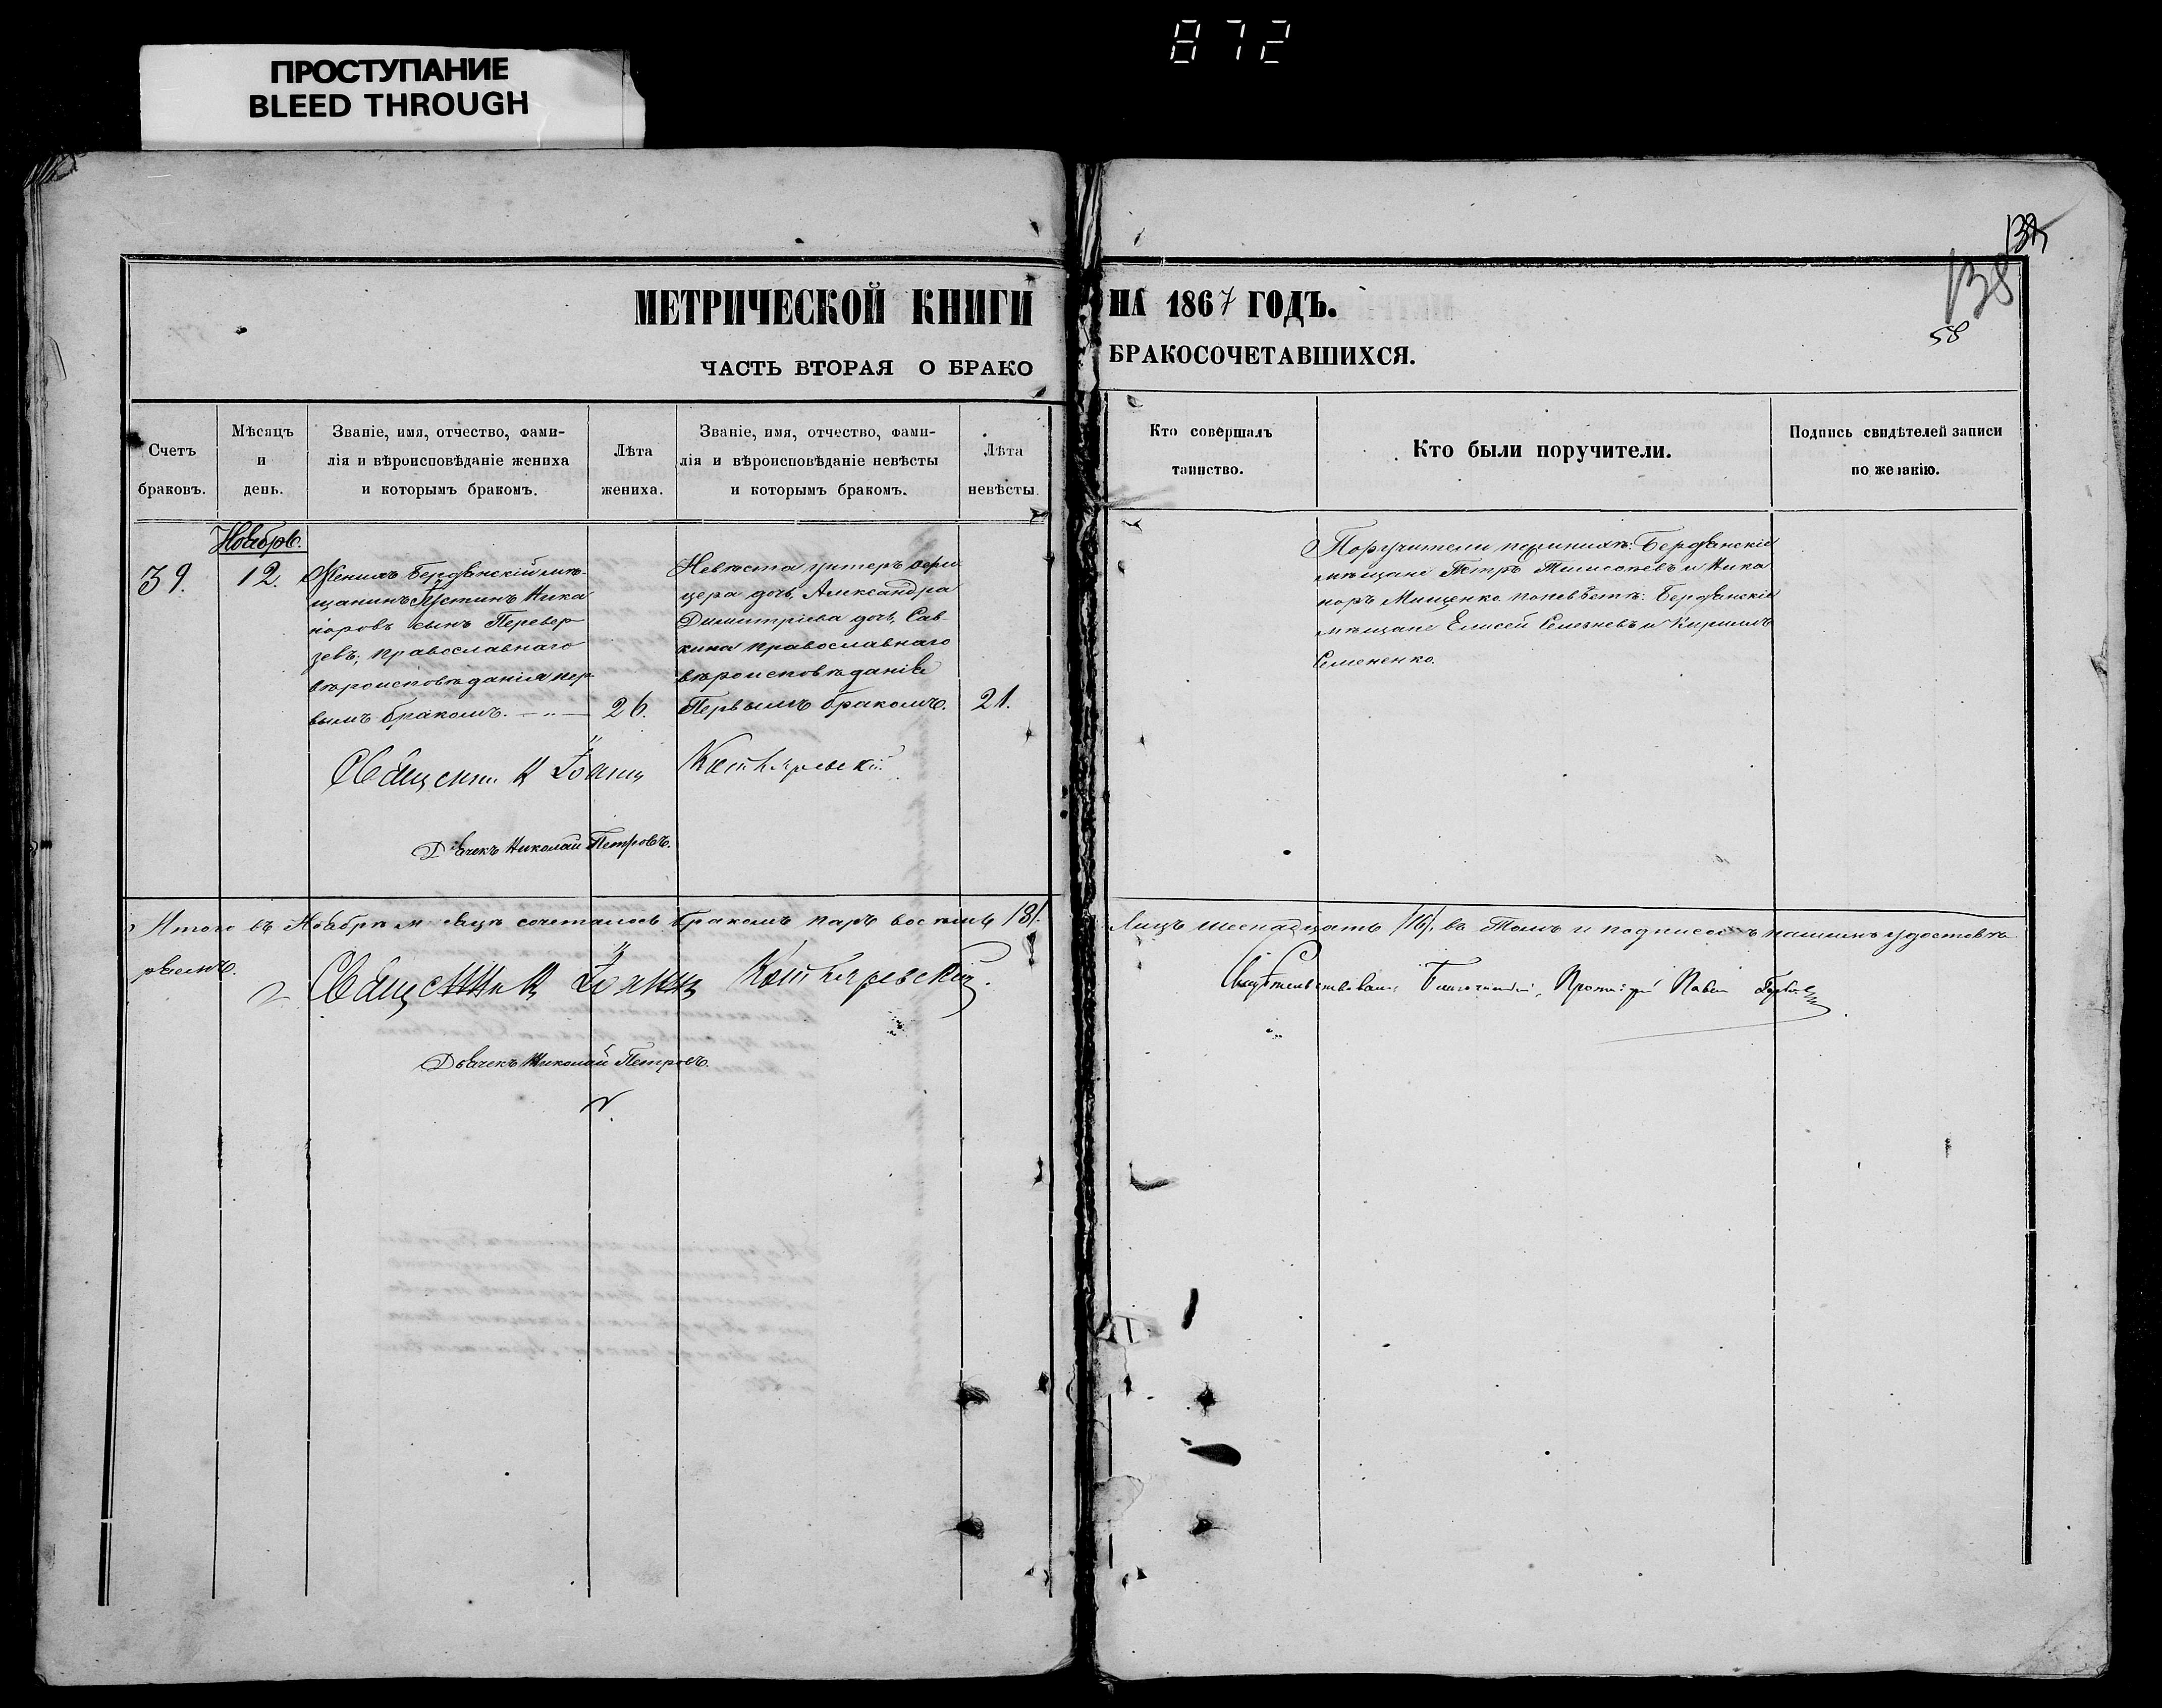 872
ПРОСТУПАНИЕ
BLEED THROUGH
138
58
МЕТРИЧЕСКОЙ КНИГИ НА 1867 ГОДЪ.
ЧАСТЬ ВТОРАЯ О БРАКО БРАКОСОЧЕТАВШИХСЯ.
Счетъ браковъ.
Мѣсяцъ и день.
Званіе, имя, отчество, фами-
лія и вѣроисповѣданіе жениха
и которымъ бракомъ.
Лѣта жениха.
Званіе, имя, отчество, фами-
лія и вѣроисповѣданіе невѣсты
и которымъ бракомъ.
Лѣта невѣсты.
Кто совершалъ
таинство.
Кто были поручители.
Подпись свидѣтелей записи
по желанію.
Ноябрь.
39.
12.
Женихъ Бердянскій мѣ-
щанинъ Іустинъ Ника
норовъ сынъ Перевер
зевъ; православнаго
вѣроисповѣданія пер
вымъ бракомъ.
26.
Невѣста унтеръ офи
цера дочь, Александра
Димитріева дочь, Сав
кина православнаго
вѣроисповѣданія
Первымъ бракомъ.
21.
Поручители по женихѣ: Бердянскіе
мѣщане Петръ и Ника
норъ Мищенко по невѣстѣ: Бердянскіе
мѣщане Елисей Селезневъ и Кириллъ
Семененко.
Священникъ Іоаннъ Котляревскій
Дьячекъ Николай Петровъ.
Итого въ Ноябрѣ мѣсяцѣ сочеталось бракомъ паръ восемь /8/.
Лицъ шеснадцать /16/. въ Томъ и подписомъ нашимъ удостовѣ
ряемъ.
Священникъ Іоаннъ Котляревскій.
Свидѣтельствовалъ Благочинный, Протоіерей Павелъ
Дьячекъ Николай Петровъ.